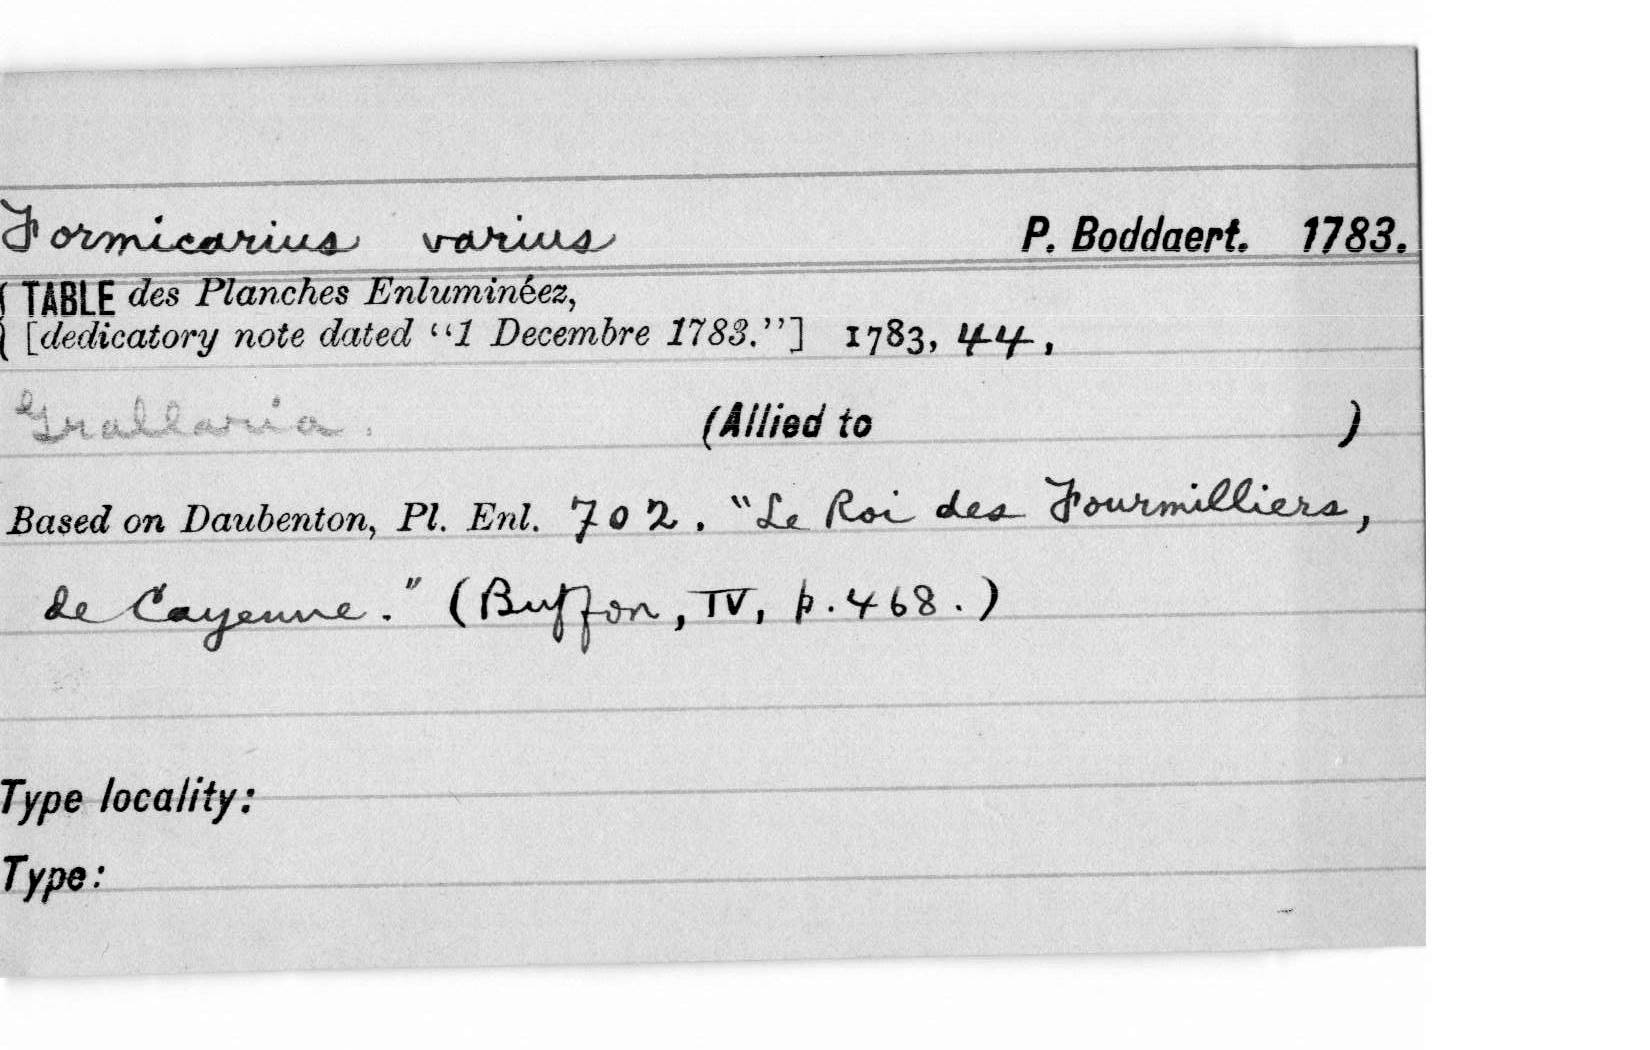 Formicarius varius P. Boddaert. 1783.
TABLE des Planches Enluminéez,
[dedicatory note dated “1 Decembre 1783.”] 1783, 44,
Grallaria. (Allied to )
Based on Daubenton, Pl. Enl. 702. "Le Roi des Fourmilliers,
de Cayenne." (Buffon, IV, p. 468.)
Type locality:
Type: